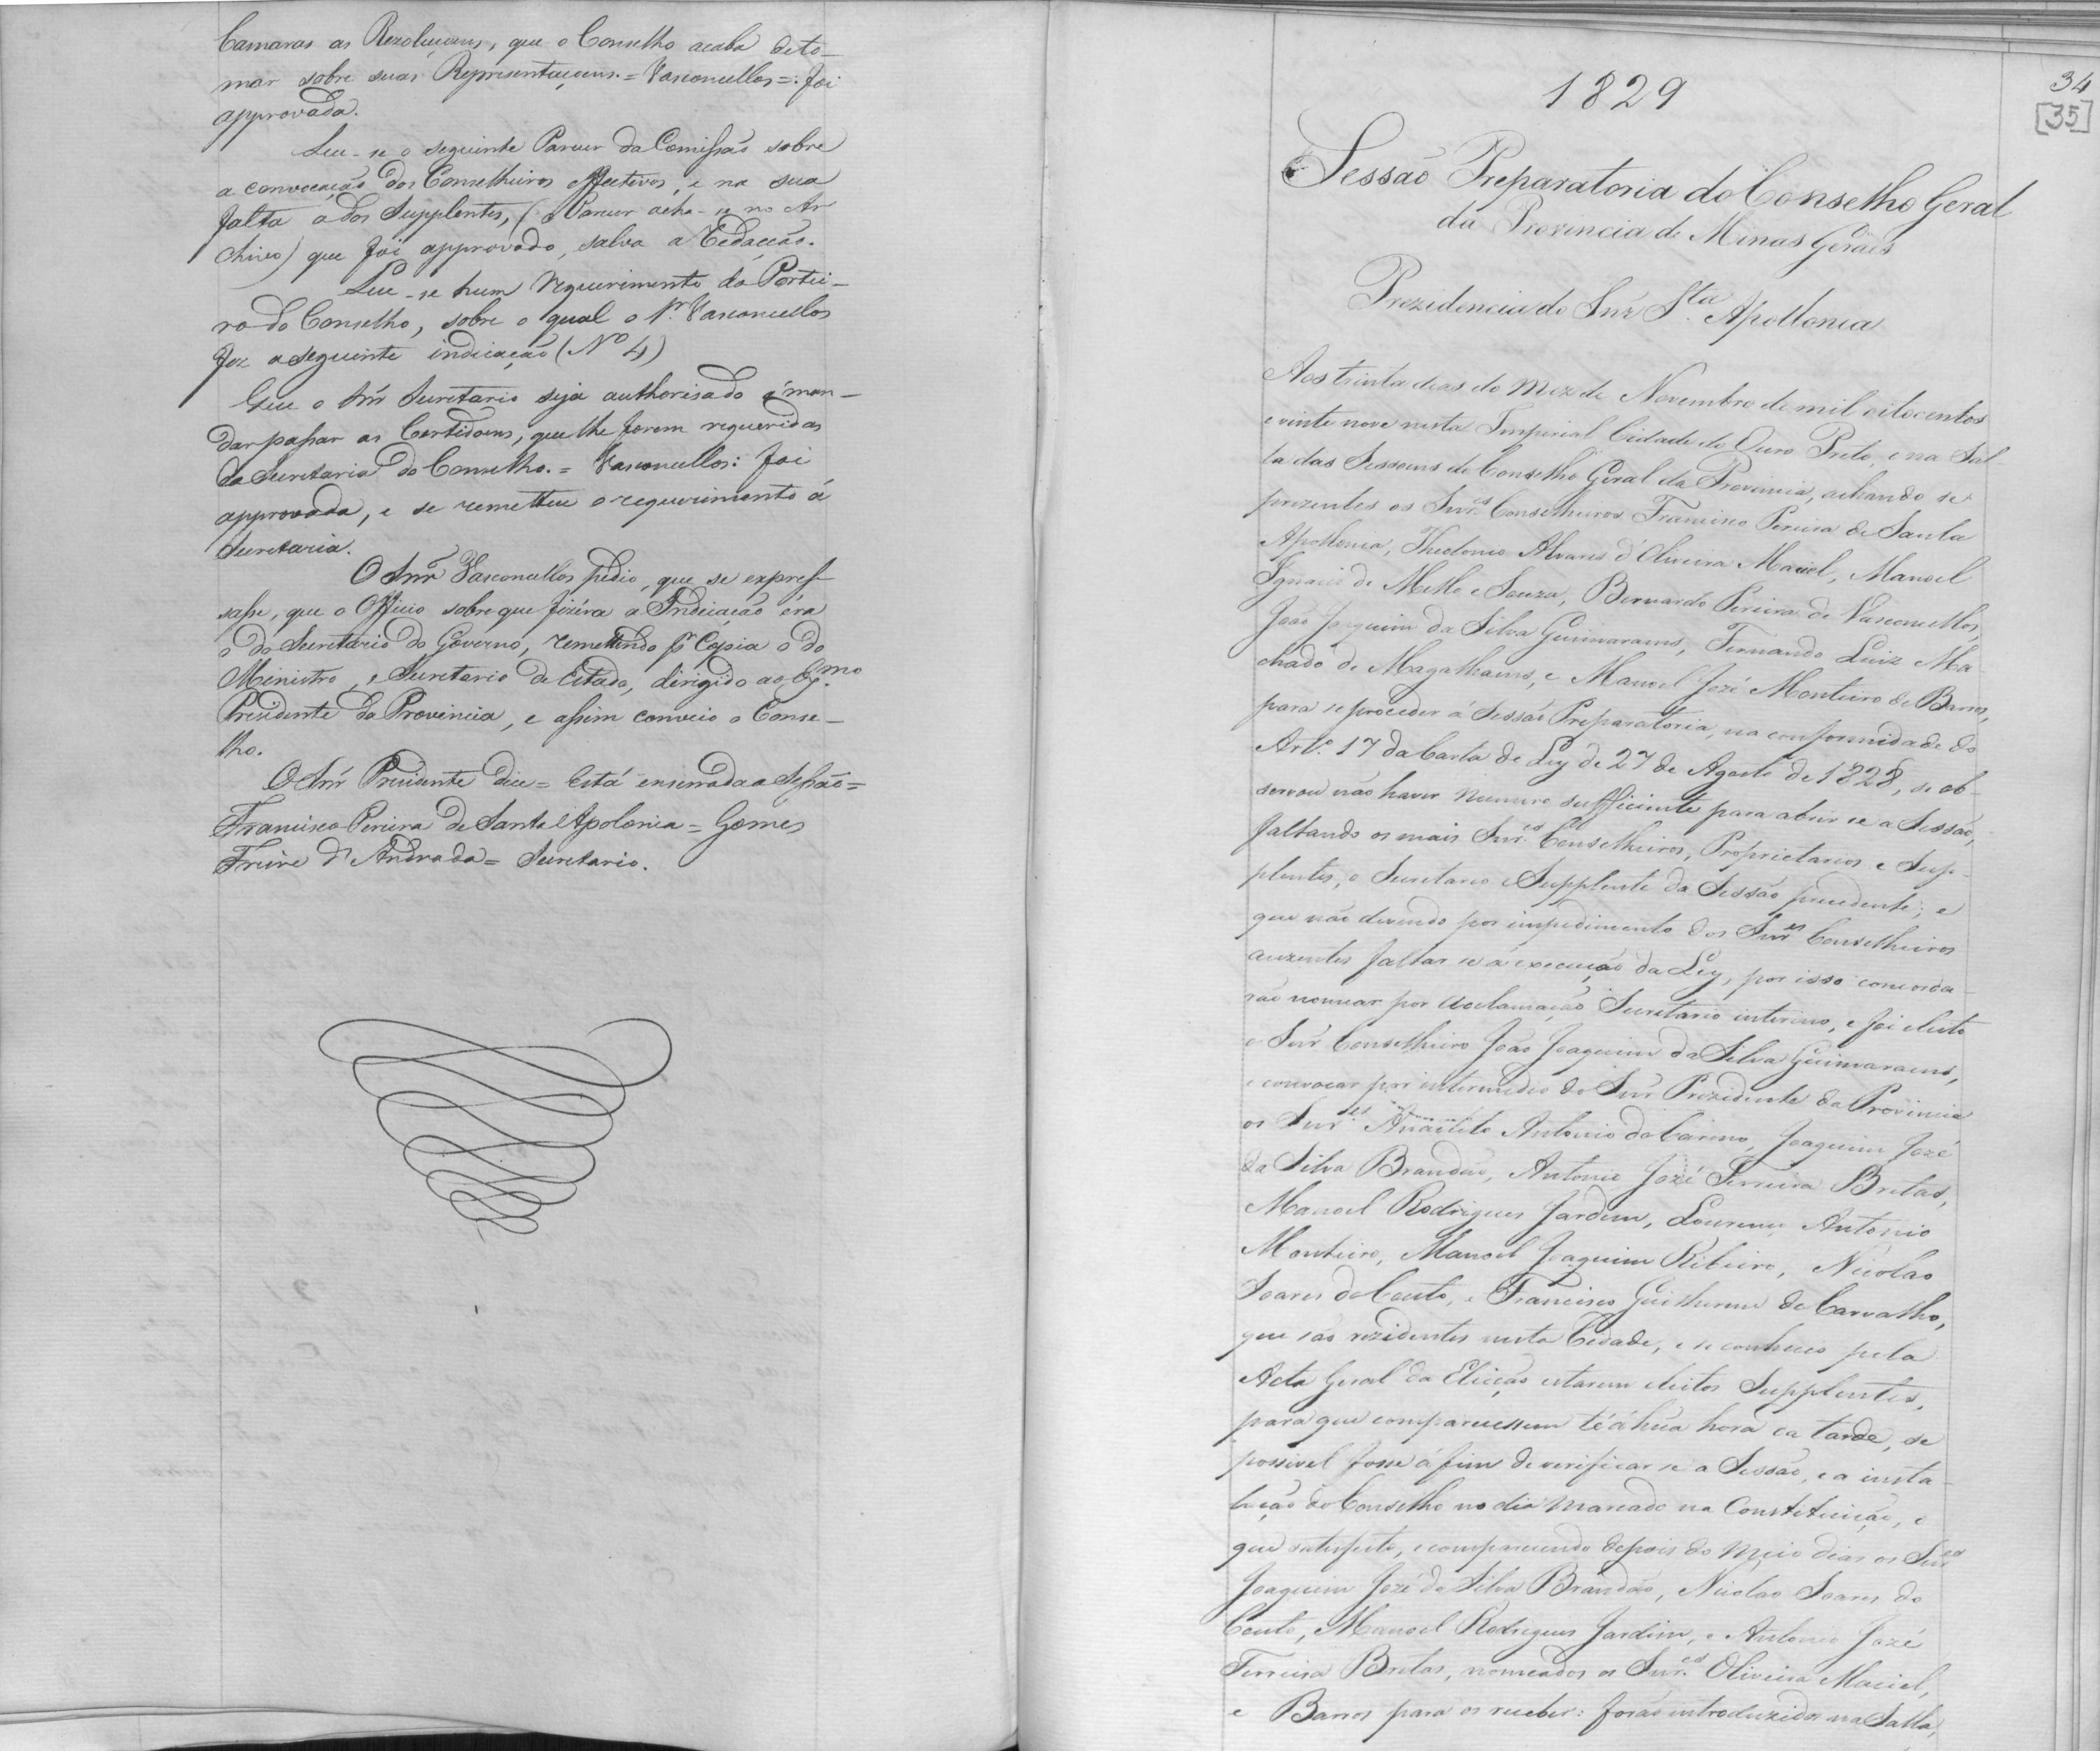 Camaras as Rezoluçoens, que o Conselho acaba de to-
mar sobre suas Representaçoens. = Vasconcellos =: foi
approvada.
Leu-se o seguinte Parecer da Comissão sobre
a convocação dos Conselheiros effectivos, e na sua
falta a dos Supplentes, (o Parecer acha-se no Ar
chivo) que foi approvado, salva a Redacção.
Leu-se hum requerimento do Portei-
ro do Conselho, sobre o qual o Sr. Vasconcellos
fez a seguinte indicação (Nº 4)
Que o Snr Secretario seja authorisado á man-
dar passar as Certidoens, que lhe forem requeridas
da Secretaria do Conselho. = Vasconcellos: foi
approvada, e se remetteu o requerimento á
Secretaria.
O Snr Vasconcellos pedio, que se expres-
sasse, que o Officio sobre que fizéra a Indicação éra
o do Secretario do Governo, remettendo pr Copia o do
Ministro, e Secretario de Estado, dirigido ao Exmo
Presidente da Provincia, e assim conveio o Conse-
lho.
O Snr Presidente dice = Está encerrada a Sessão =
Francisco Pereira de Santa Apolonia = Gomes
Freire d'Andrada = Secretario.
1829
34
[35]
Sessão Preparatoria do Conselho Geral
da Provincia de Minas Geraes
Prezidencia do Snr Sta. Apollonia
Aos trinta dias do Mez de Novembro de mil oitocentos
e vinte nove nesta Imperial Cidade do Ouro Preto, e na Sal
la das Sessoens do Conselho Geral da Provincia, achando se
prezentes os Snres Conselheiros Francisco Pereira de Santa
Apollonia, Theotonio Alvares d'Oliveira Maciel, Manoel
Ignacio de Mello e Souza, Bernardo Pereira de Vasconcellos,
João Joaquim da Silva Guimaraens, Fernando Luiz Ma-
chado de Magalhaens, e Manoel Jozé Monteiro de Barros,
para se proceder á Sessão Preparatoria, na conformidade do
Artº. 17 da Carta de Ley de 27 de Agosto de 1828, se ob-
servou não haver numero sufficiente para abrir se a Sessão,
faltando os mais Snres Conselheiros, Proprietarios e Sup-
plentes, o Secretario e Supplente da Sessão precedente; e
que não devendo por impedimento dos Snres Conselheiros
auzentes faltar se á execução da Ley, por isso concorda-
rão nomear por acclamação Secretario interino, e foi eleito
o Snr Conselheiro João Joaquim da Silva Guimaraens,
e convocar por intermedio do Snr Prezidente da Provincia
os Snres Anacleto Antonio do Carmo, Joaquim Jozé
da Silva Brandão, Antonio Jozé Ferreira Bretas,
Manoel Rodrigues Jardim, Lourenço Antonio
Monteiro, Manoel Joaquim Ribeiro, Nicolao
Soares do Couto, e Francisco Guilherme de Carvalho,
que são rezidentes nesta Cidade, e se conheceo pela
Acta Geral da Eleição estarem eleitos Supplentes,
para que comparecessem té á hũa hora da tarde, se
possivel fosse á fim de verificar se a Sessão, e a insta-
lação do Conselho no dia marcado na Constituição, o
que satisfeito, e comparecendo depois do meio dia os Snres
Joaquim Jozé da Silva Brandão, Nicolao Soares do
Couto, Manoel Rodrigues Jardim, e Antonio Jozé
Ferreira Bretas, nomeados os Snres Oliveira Maciel,
e Barros para os receber: forão introduzidos na Salla,